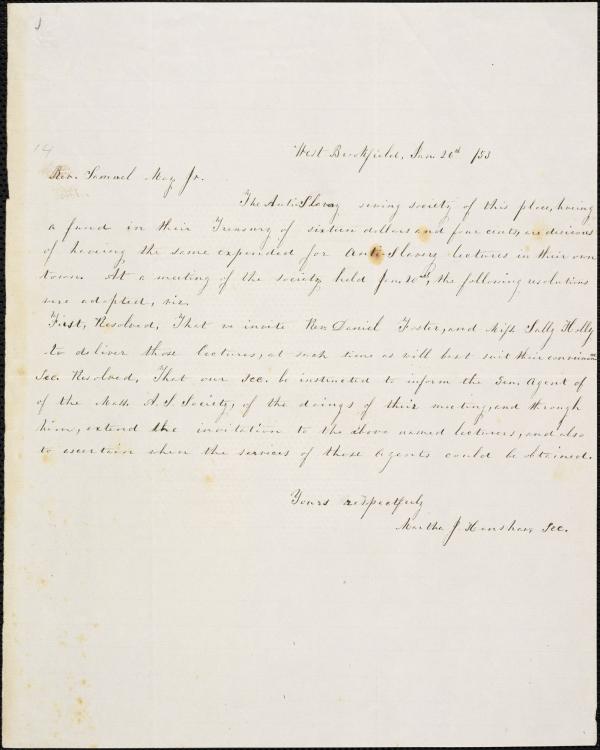 14
West Brookfield, Jan. 20th /53
Rev. Samuel May Jr.
The Anti Slavery sewing society of this place, having
a fund in their Treasury of sixteen dollars and four cents, are desirous
of having the same expended for Anti-Slavery lectures in their own
town. At a meeting of the society held Jan. 20th, the following resolutions
were adopted, viz.
First, Resolved, That we invite Rev. Daniel Foster, and Miss Sally Holly
to deliver those lectures, at such time as will best suit their
Sec. Resolved, That our Sec. be instructed to inform the Gen. Agent of
of the Mass. A. S. Society, of the doings of their meeting, and through
him, extend the invitation to the above named lecturers, and also
to ascertain when the services of those agents could be obtained.
Yours respectfully
Martha J Henshaw Sec.